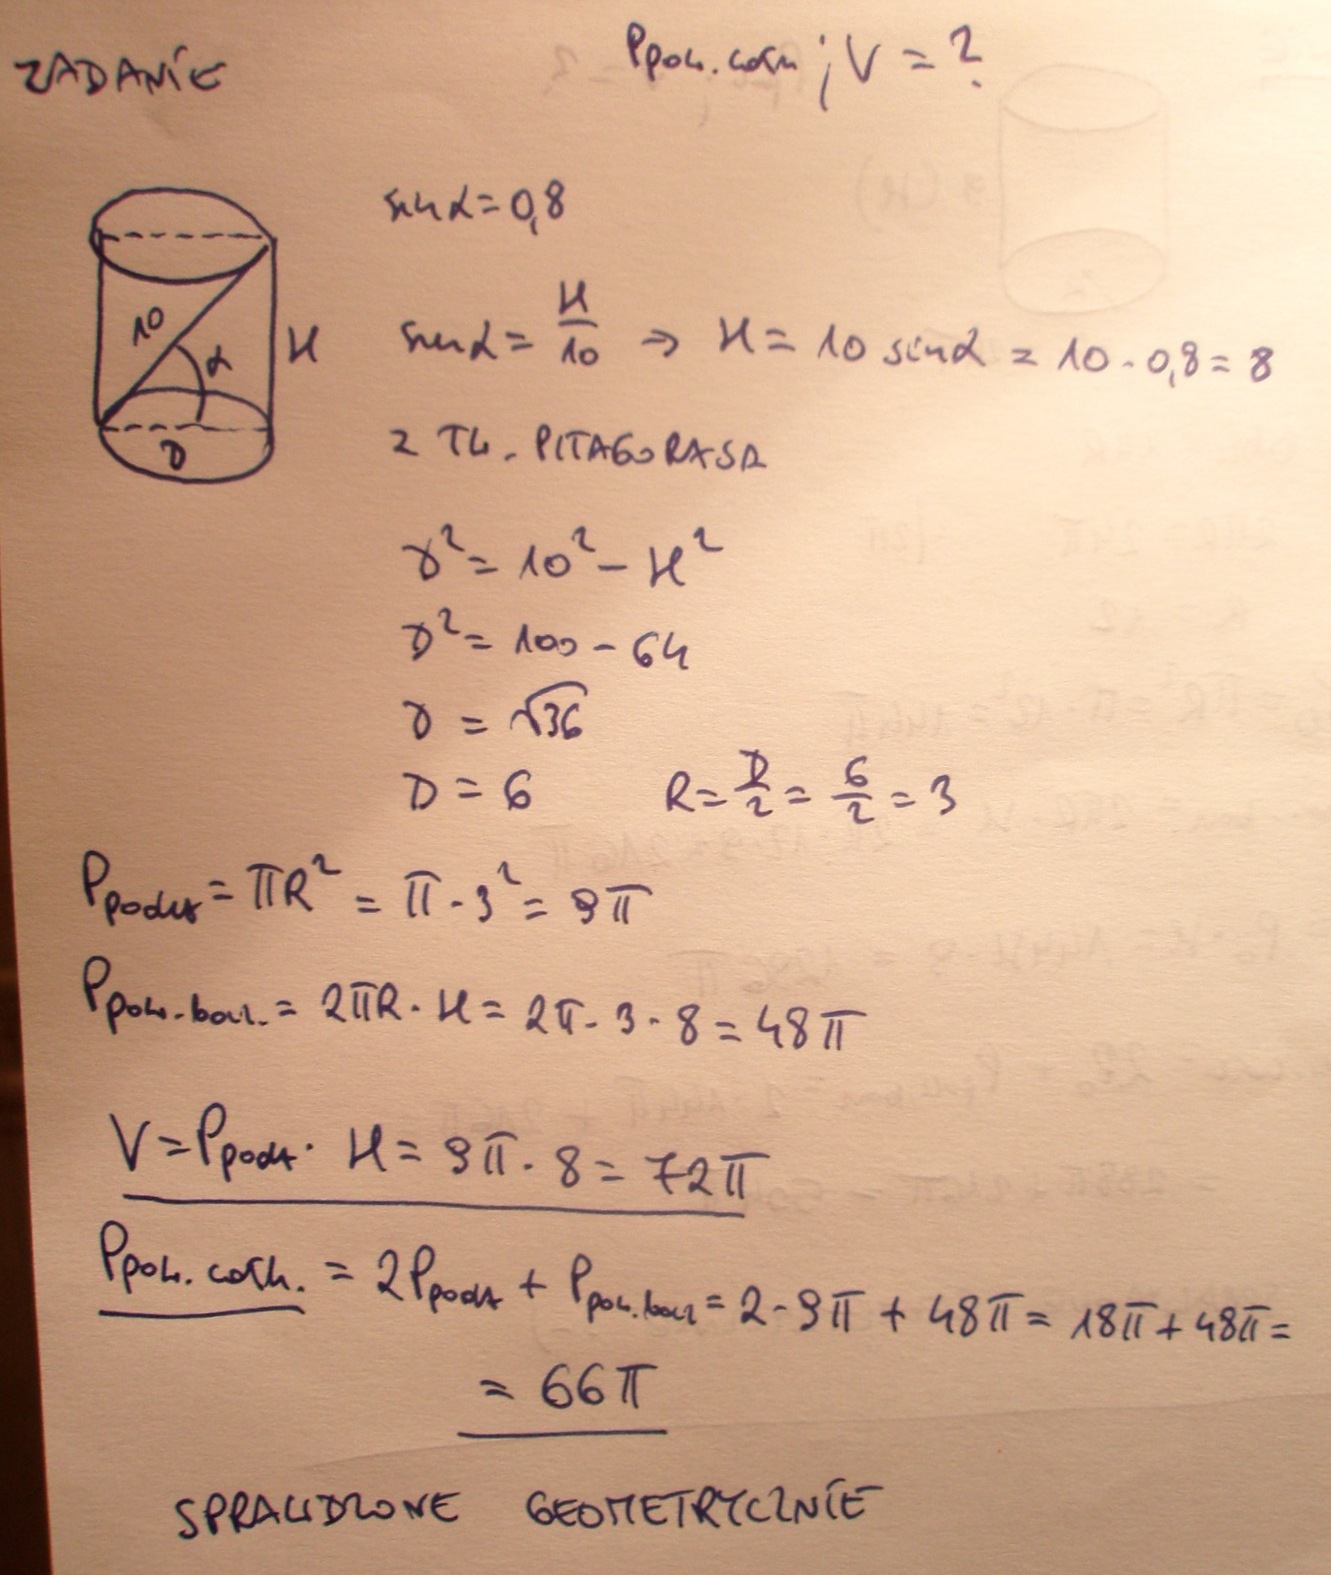 ZADANIE
Ppow. całk ; V = ?
sin α = 0,8
10
H
α
D
sin α = H/10 ⇒ H = 10 sin α = 10 · 0,8 = 8
Z TW. PITAGORASA
D² = 10² - H²
D² = 100 - 64
D = √36
D = 6 R = D/2 = 6/2 = 3
Ppodst = πR² = π · 3² = 9π
Ppow. bocz. = 2πR · H = 2π · 3 · 8 = 48π
V = Ppodst · H = 9π · 8 = 72π
Ppow. całk. = 2Ppodst + Ppow. bocz = 2 · 9π + 48π = 18π + 48π =
= 66π
SPRAWDZONE GEOMETRYCZNIE